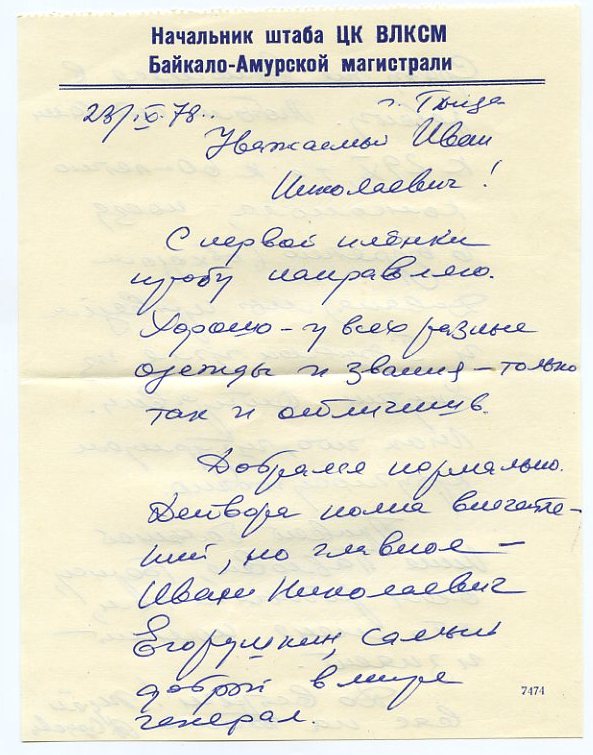 Начальник штаба ЦК ВЛКСМ
Байкало-Амурской магистрали
23/IX-78.
г. Тында
Уважаемый Иван
Николаевич!
С первой плёнки
пробу направляю.
Хорошо - у всех разные
одежды и звания - только
так и отличив.
Добрался нормально.
Детвора полна впечатле-
ний, но главное -
Иван Николаевич
Егорушкин, самый
добрый в мире
генерал.
7474